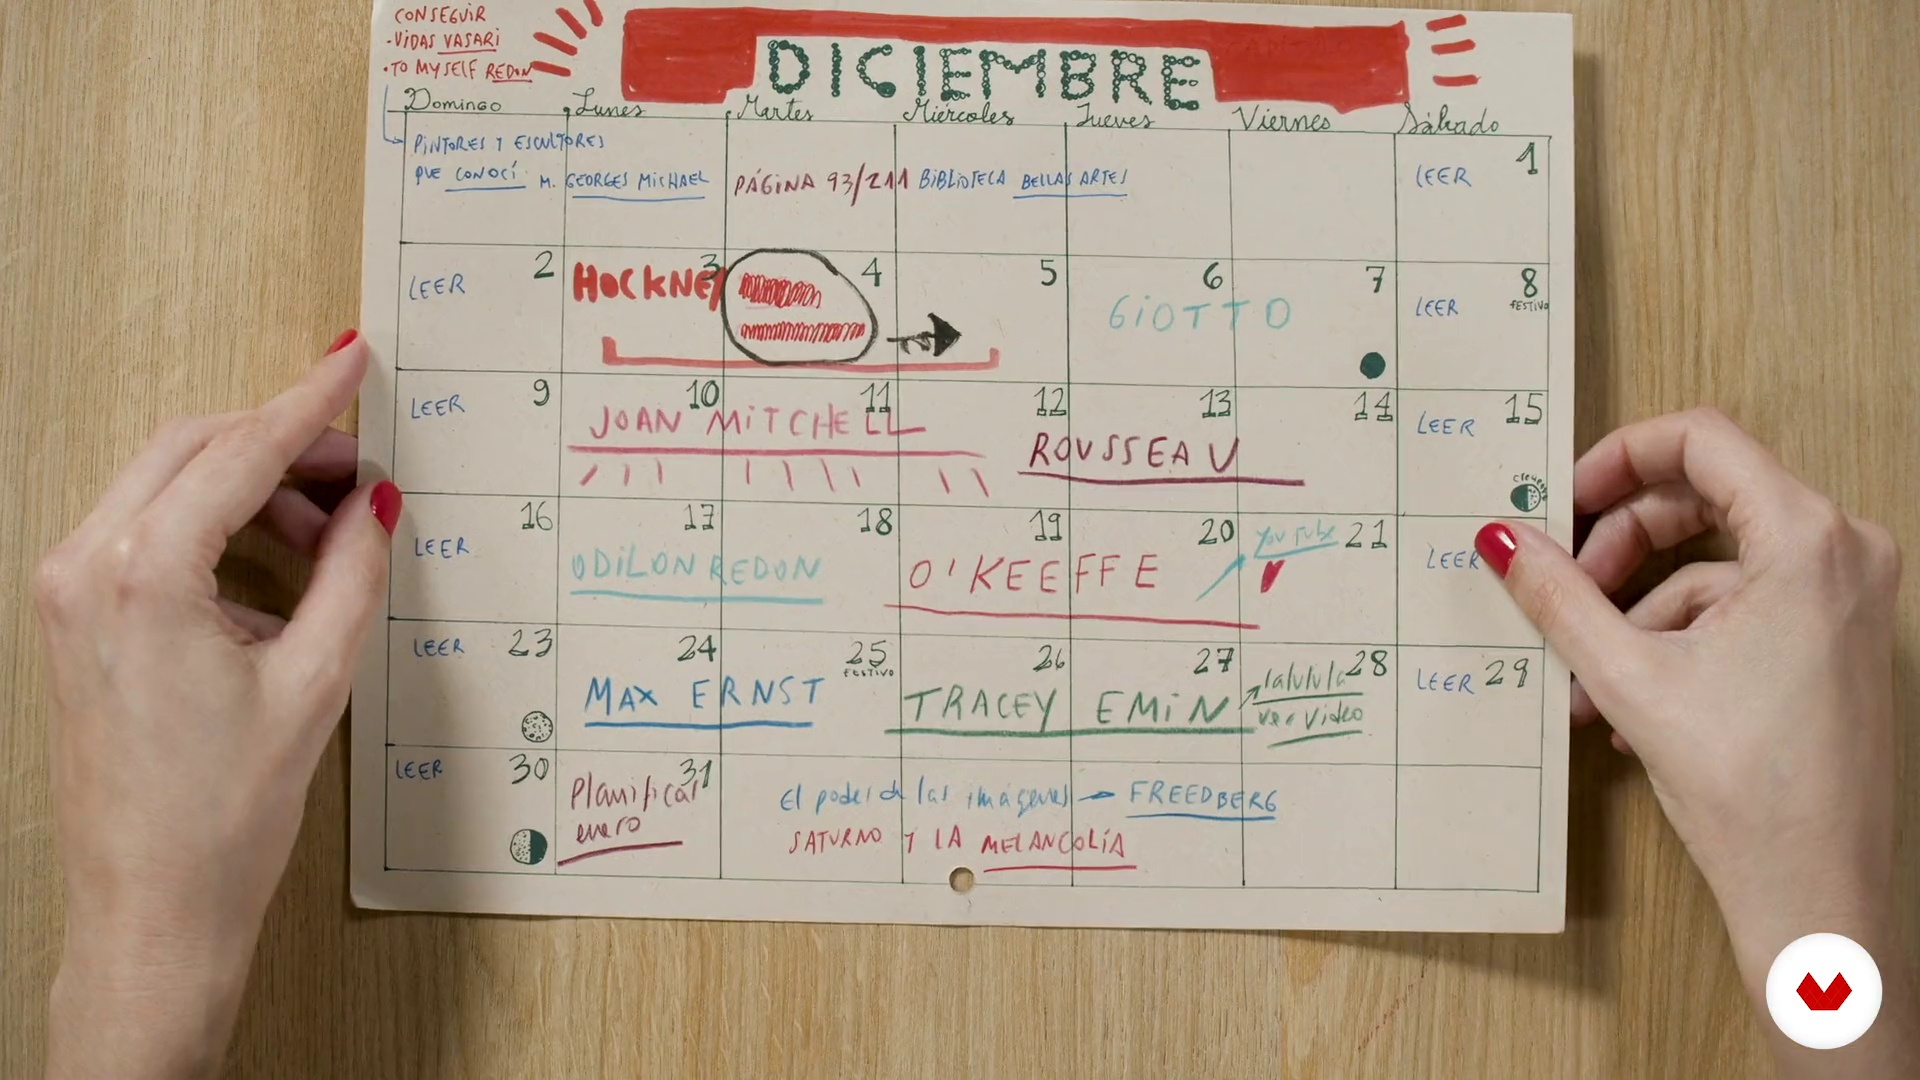 CONSEGUIR
- VIDAS VASARI
• TO MYSELF REDON
DICIEMBRE
Domingo Lunes Martes Miércoles Jueves Viernes Sábado
PINTORES Y ESCULTORES
QUE CONOCÍ M. GEORGES MICHAEL PÁGINA 93/211 BIBLIOTECA BELLAS ARTES
LEER 1
LEER 2 HOCKNEY 3 4 5 6 7 LEER 8
FESTIVO
GIOTTO
LEER 9 10 11 12 13 14 LEER 15
JOAN MITCHELL
ROUSSEAU
creciente
16 17 18 19 20 YouTube 21
LEER ODILON REDON O'KEEFFE LEER
LEER 23 24 25 26 27 28 LEER 29
FESTIVO
MAX ERNST TRACEY EMIN lalulula
ver video
LEER 30 31
Planificar
enero
El poder de las imágenes → FREEDBERG
SATURNO Y LA MELANCOLÍA